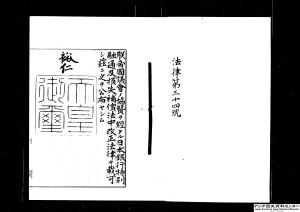 法律第三十四號
朕帝國議會ノ協贊ヲ經タル日本銀行特別
融通及損失補償法中改正法律ヲ裁可
シ茲ニ之ヲ公布セシム
裕仁
天皇
御璽
アジア歴史資料センター